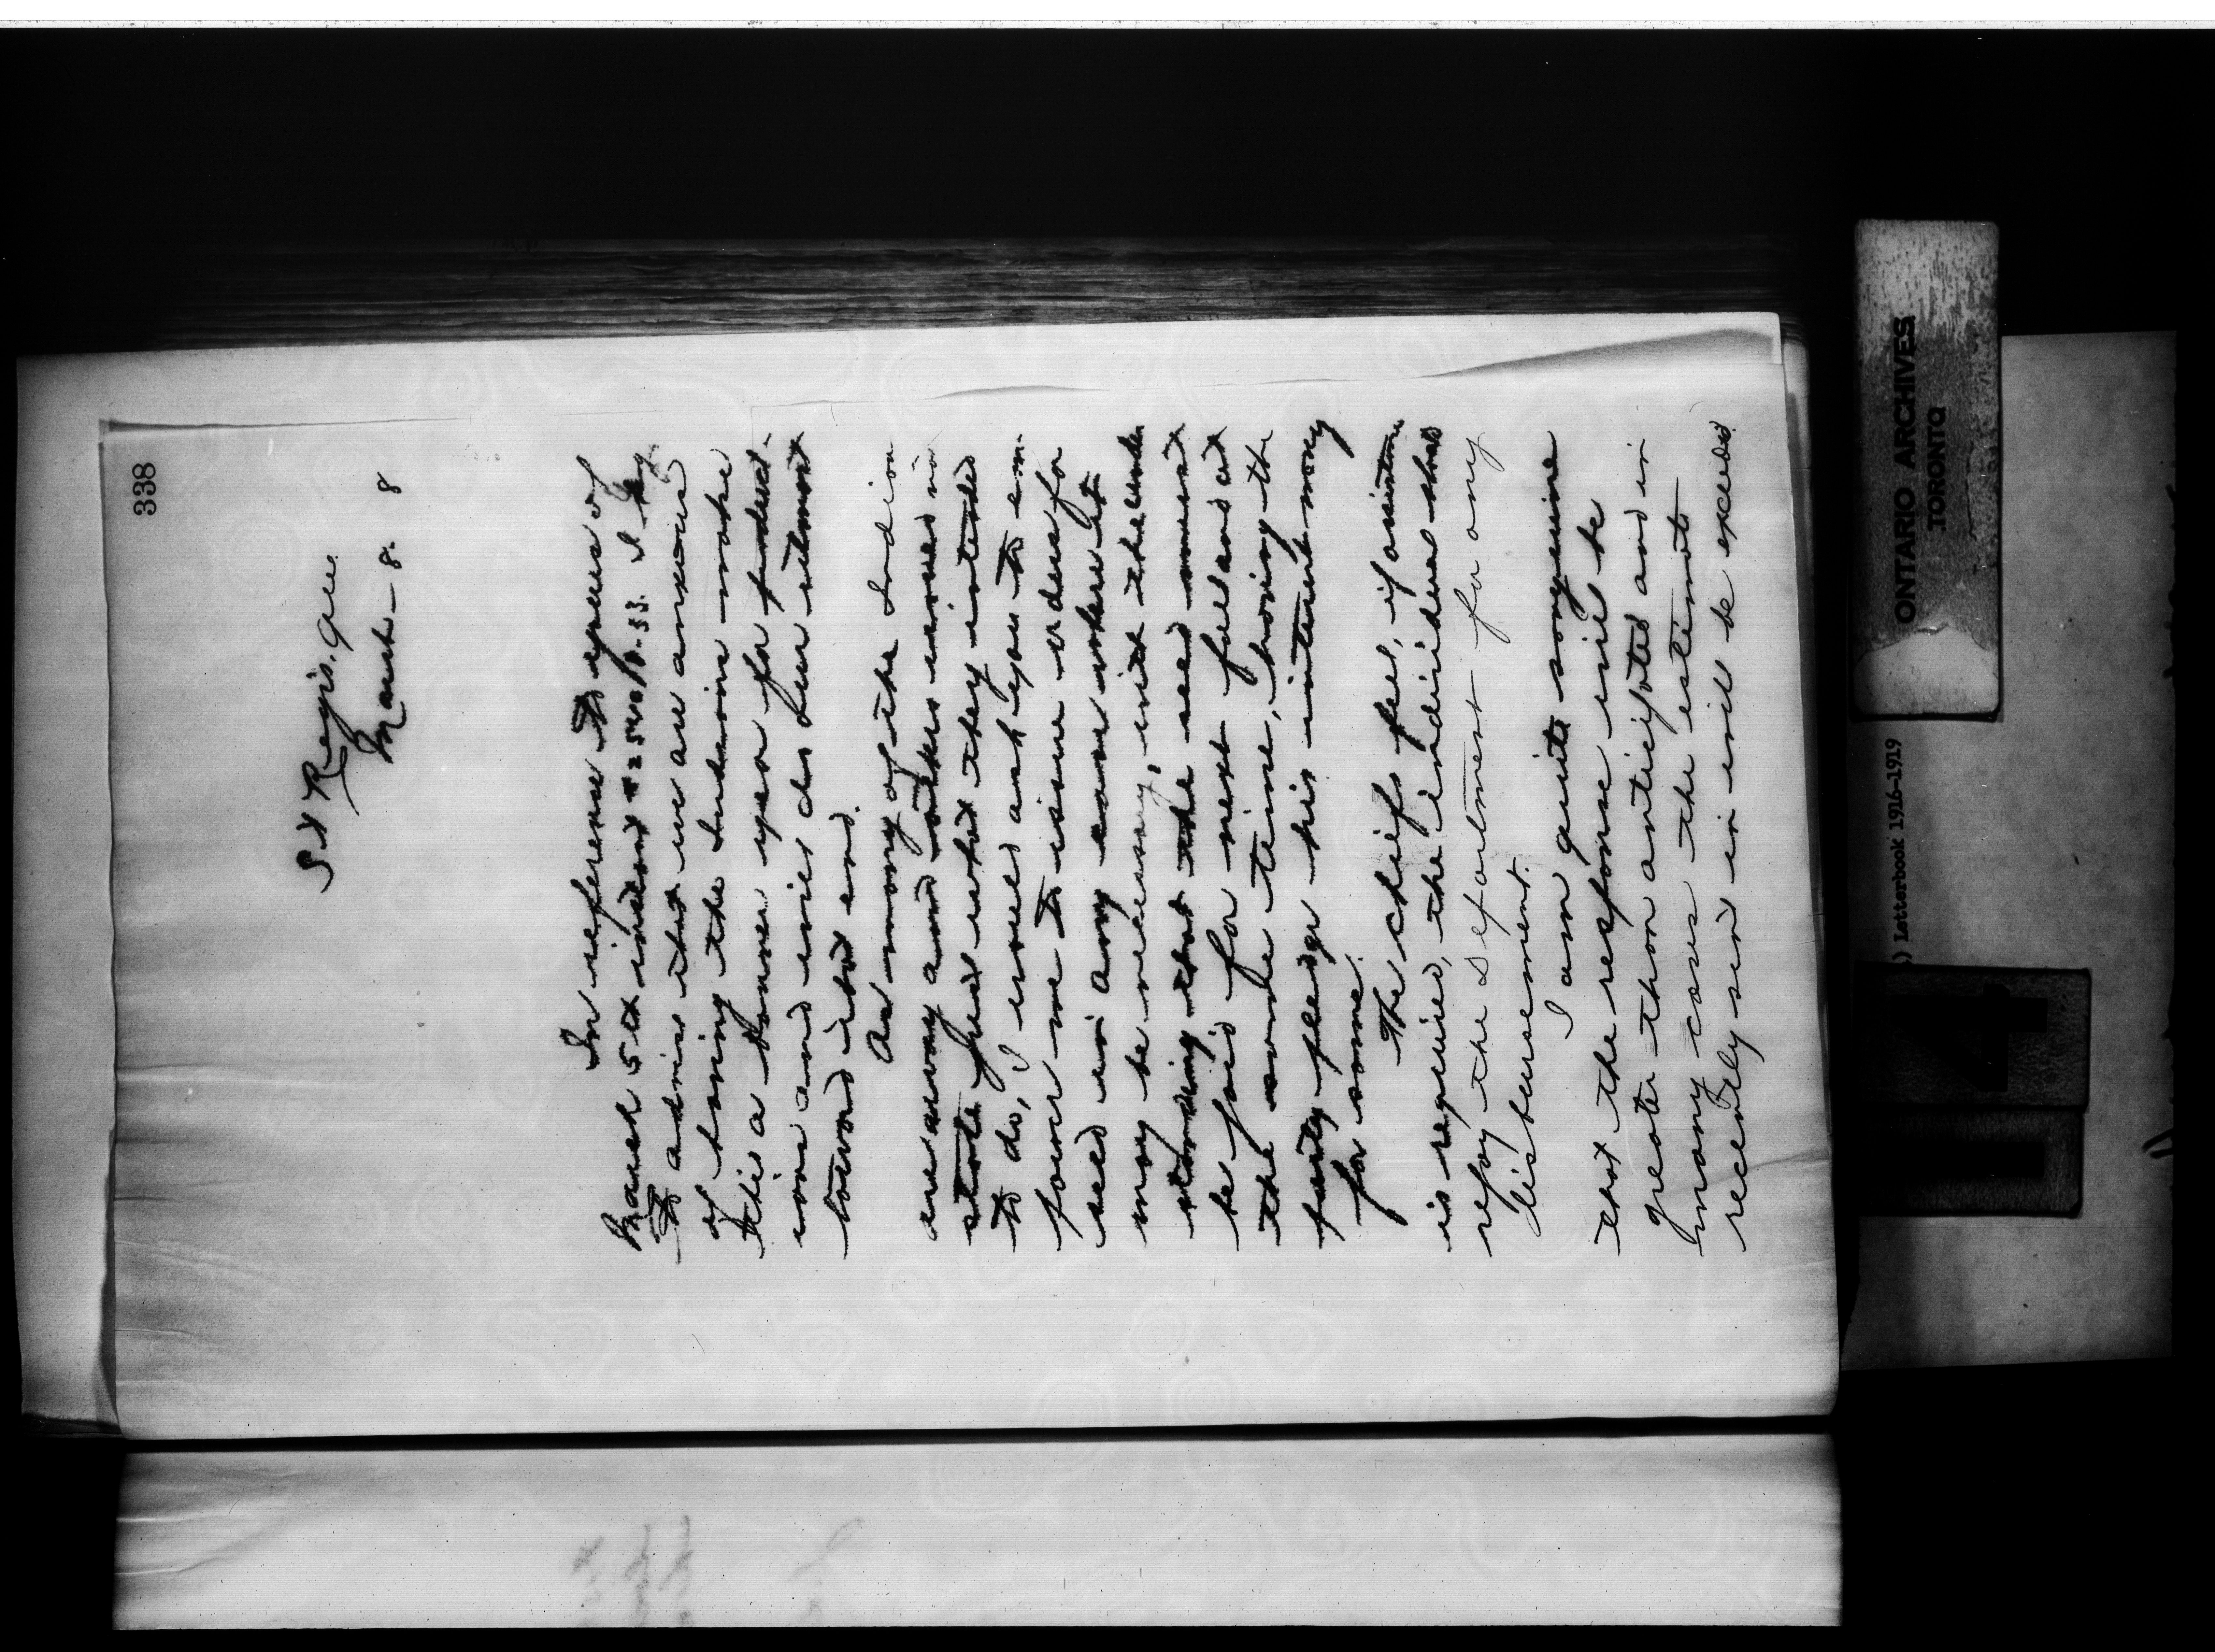 338
St Regis. Que.
March - 8. 8
In reference to yours of
March 5th instant # 254010-33. I beg
to advise that we are anxious
of having the Indians make
this a banner year for product-
ions and will do our utmost
toward that end.
As many of the Indians
are away and others unable
state just what they intended
to do, I would ask you to em-
power me to issue orders for
seed in any case where it
may be necessary, with the under
standing that the seed must
be paid for next fall and at
the same time, having the
party pledge his interest money
for same.
The chiefs feel, if assistance
is required, the individual shall
repay the Department for any
disbursement.
I am quite sanguine
that the response will be
greater than anticipated and in
many cases the estimate
recently sent in will be exceeded
ONTARIO ARCHIVES
TORONTO
) Letterbook 1916-1919
4